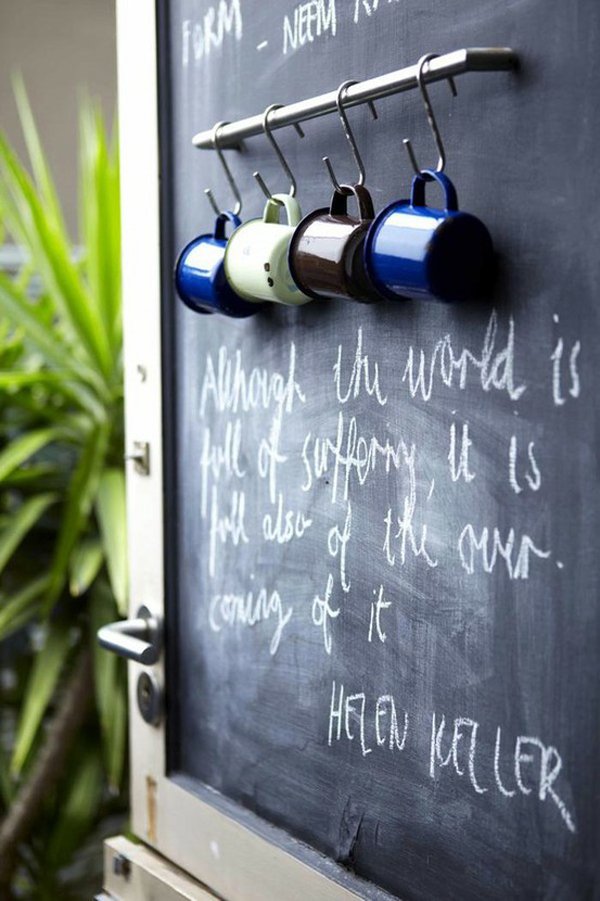 FORM - NEEM
Although the world is
full of suffering, it is
full also of the over.
coming of it
HELEN KELLER